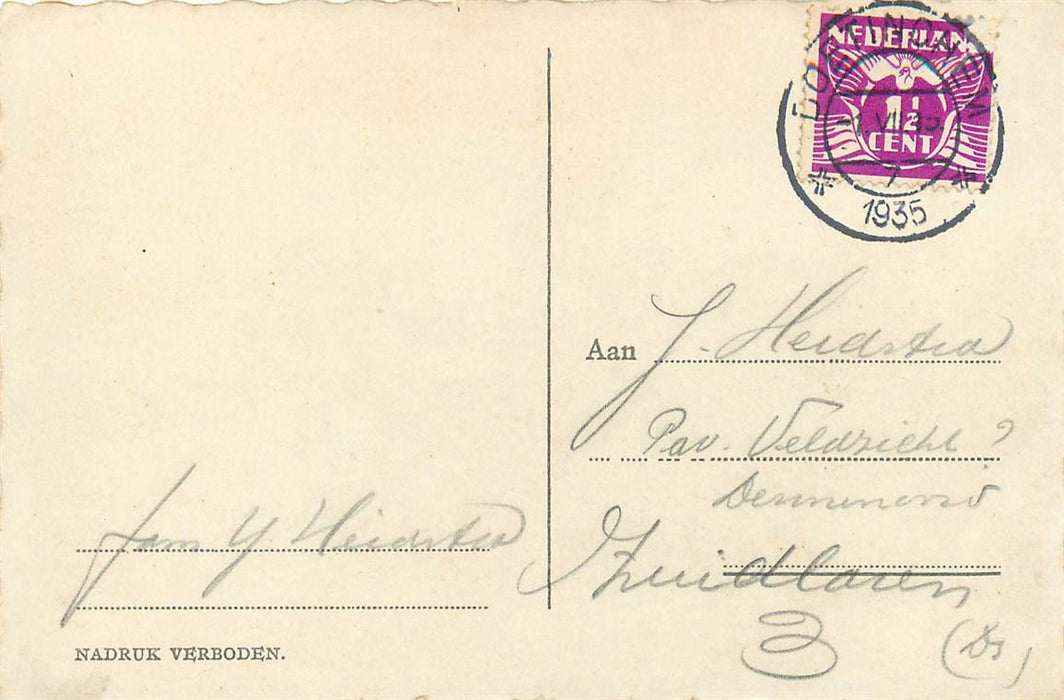 NEDERLAND
1½
CENT
1935
Aan J. Heidstra
Pav. Veldzicht
Dennenoord
Zuidlaren
Fam Y. Heidstra
NADRUK VERBODEN.